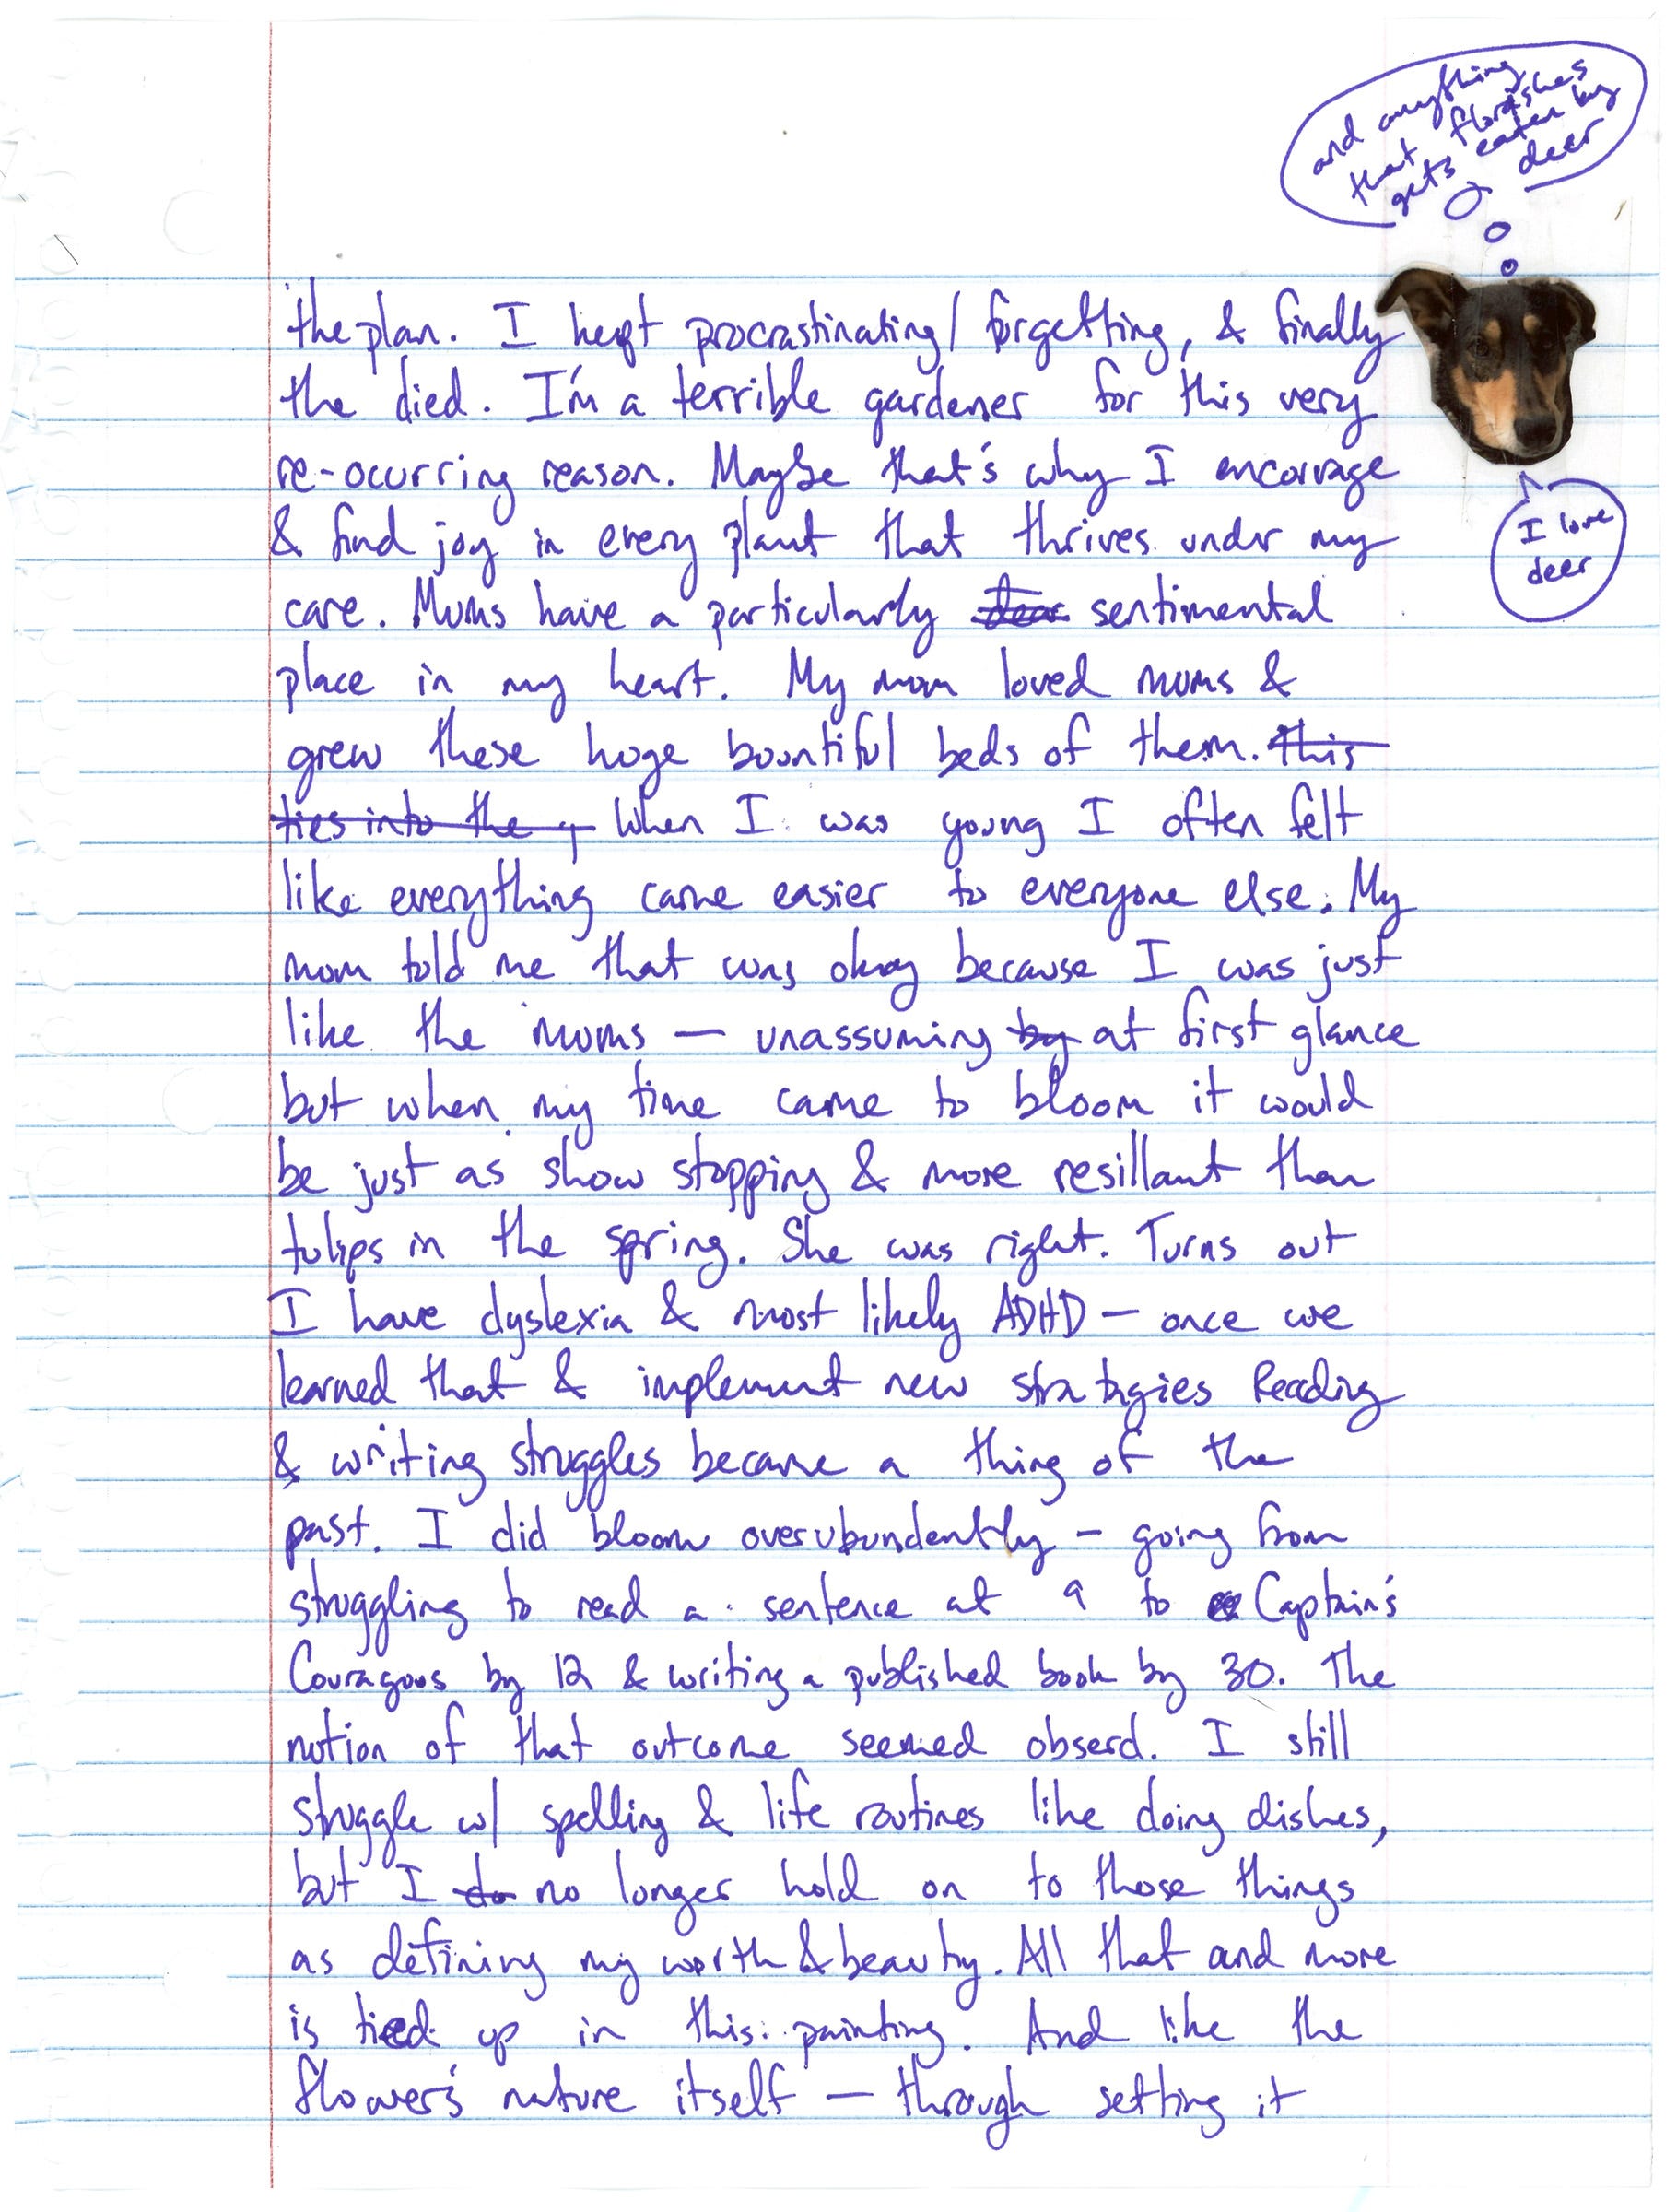 and anything
that florishes
gets eaten by
deer
the plan. I kept procrastinating/forgetting, & finally
the died. I'm a terrible gardener for this very
re-ocurring reason. Maybe that's why I encorage
& find joy in every plant that thrives under my
care. Mums have a particularly dear sentimental
place in my heart. My mom loved mums &
grew these huge bountiful beds of them. this
ties into the y When I was young I often felt
like everything came easier to everyone else. My
mom told me that was okay because I was just
like the mums — unassuming by at first glance
but when my time came to bloom it would
be just as show stopping & more resillant than
tulips in the spring. She was right. Turns out
I have dyslexia & most likely ADHD — once we
learned that & implement new stratagies Reading
& writing struggles became a thing of the
past. I did bloom overubundently — going from
struggling to read a sentence at 9 to Captain's
Couragous by 12 & writing a published book by 30. The
notion of that outcome seemed obserd. I still
struggle w/ spelling & life routines like doing dishes,
but I do no longer hold on to those things
as defining my worth & beauty. All that and more
is tied up in this painting. And like the
flower's nature itself — through setting it
I love
deer